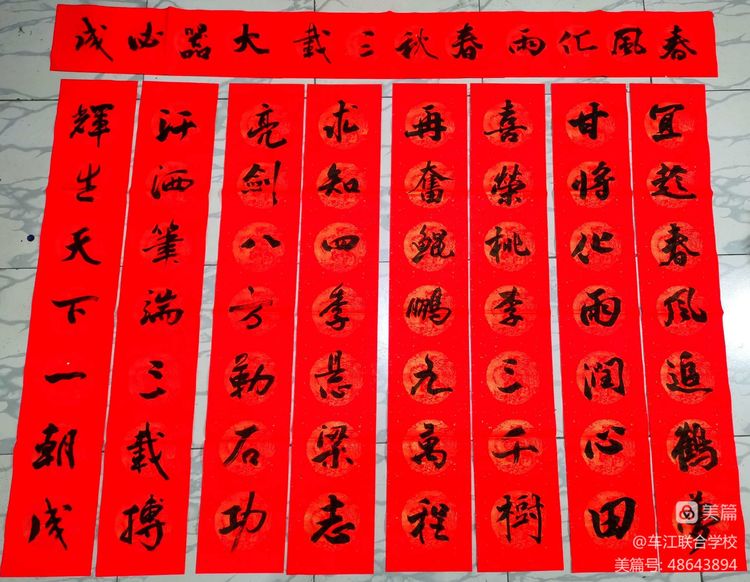 春風化雨春秋三載大器必成
宜趁春风追鶴夢
甘将化雨润心田
喜榮桃李三千樹
再奮鲲鵬九萬程
求知四季悬梁志
亮劍八方勒石功
汗洒筆端三載搏
輝生天下一朝成
美篇
@车江联合学校
美篇号: 48643894